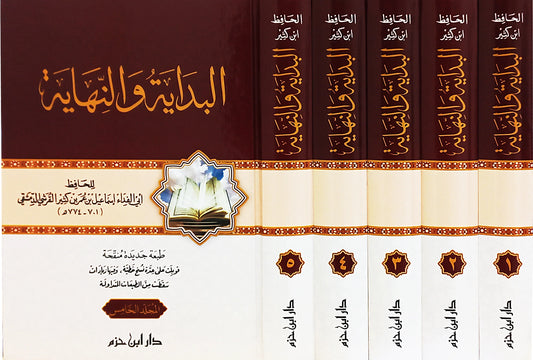 البداية والنهاية
للحافظ
أبي الفداء إسماعيل بن عمر بن كثير القرشي الدمشقي
(٧٠١-٧٧٤ه)
طبعة جديدة منقحة
قوبلت على عدة نسخ خطية، وفيها زيادات
سقطت من الطبعات المتداولة
المجلد الخامس
دار ابن حزم
الحافظ
ابن كثير
البداية والنهاية
٥
الحافظ
ابن كثير
البداية والنهاية
٤
الحافظ
ابن كثير
البداية والنهاية
٣
دار ابن حزم
الحافظ
ابن كثير
البداية والنهاية
٢
الحافظ
ابن كثير
البداية والنهاية
١
دار ابن حزم